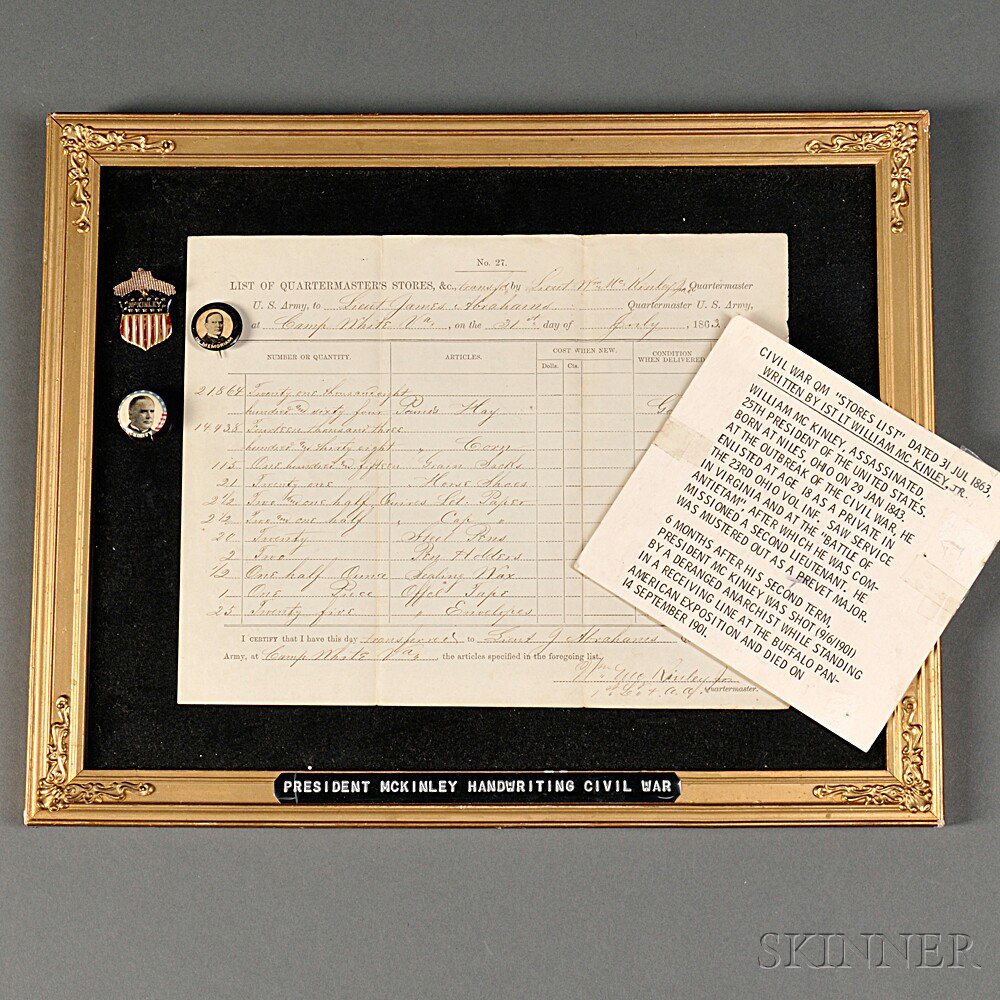 No. 27.
LIST OF QUARTERMASTER'S STORES, &c., transfd by Lieut Wm McKinley Jr, Quartermaster
U. S. Army, to Lieut James Abrahams Quartermaster U. S. Army,
at Camp White Va, on the 31st day of July, 1863.
NUMBER OR QUANTITY. ARTICLES. COST WHEN NEW. CONDITION WHEN DELIVERED
Dolls. Cts.
21864 Twenty one thousand eight
hundred & sixty four Pounds Hay
14438 thousand three
hundred & thirty eight " Corn
115 One hundred & fifteen Grain Sacks
21 Twenty one Horse Shoes
2 1/2 Two & one half Quires Let. Paper
2 1/2 Two & one half " Cap "
20 Twenty Steel Pens
2 Two Holders
1/2 One half Ounce Sealing Wax
1 One Piece Office Tape
25 Twenty five " Envelopes
I CERTIFY that I have this day transferred to Lieut J. Abrahams
Army, at Camp White Va, the articles specified in the foregoing list.
Wm McKinley Jr
1st Lt & A.A. Quartermaster.
MCKINLEY
IN MEMORIAM
CIVIL WAR QM "STORES LIST" DATED 31 JUL 1863,
WRITTEN BY 1ST LT WILLIAM MC KINLEY, JR.
WILLIAM MC KINLEY, ASSASSINATED,
25TH PRESIDENT OF THE UNITED STATES.
BORN AT NILES, OHIO ON 29 JAN 1843.
AT THE OUTBREAK OF THE CIVIL WAR, HE
ENLISTED AT AGE 18 AS A PRIVATE IN
THE 23RD OHIO VOL INF. SAW SERVICE
IN VIRGINIA AND AT THE "BATTLE OF
ANTIETAM", AFTER WHICH HE WAS COM-
MISSIONED A SECOND LIEUTENANT. HE
WAS MUSTERED OUT AS A PREVET MAJOR.
6 MONTHS AFTER HIS SECOND TERM,
PRESIDENT MC KINLEY WAS SHOT (9/6/1901)
BY A DERANGED ANARCHIST WHILE STANDING
IN A RECEIVING LINE AT THE BUFFALO PAN-
AMERICAN EXPOSITION AND DIED ON
14 SEPTEMBER 1901.
PRESIDENT MCKINLEY HANDWRITING CIVIL WAR
SKINNER